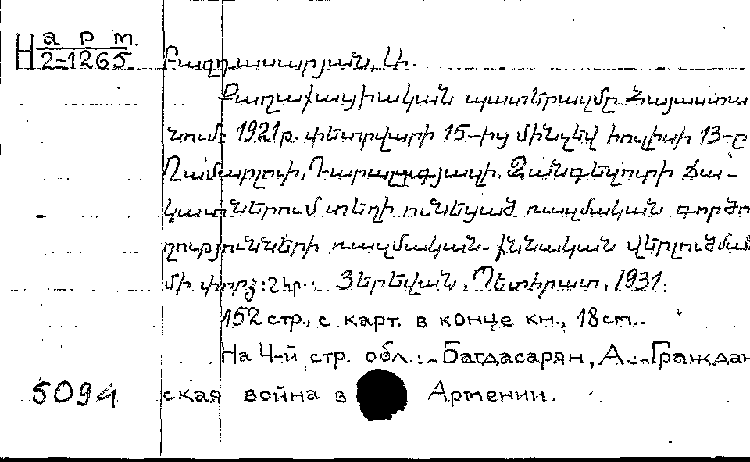 Н арт.
2-1265 Բաղդասարյան, Ա.
Քաղաքացիական պատերազմը Հայաստա
նում: 1921թ. փետրվարի 15-ից մինչեվ հուլիսի 13-ը
Ղամարլուի, Դարալագյազի, Զանգեզուրի ճա-
կատներում տեղի ունեցած ռազմական գործո
ղությունների ռազմական-քննական վերլուծման
մի փորձ: Յերեվան, Պետհրատ, 1931.
152 стр., с карт. в конце кн., 18 cm.
На 4-й стр. обл.: Багдасарян, А. Граждан
5094 ская война в Армении.